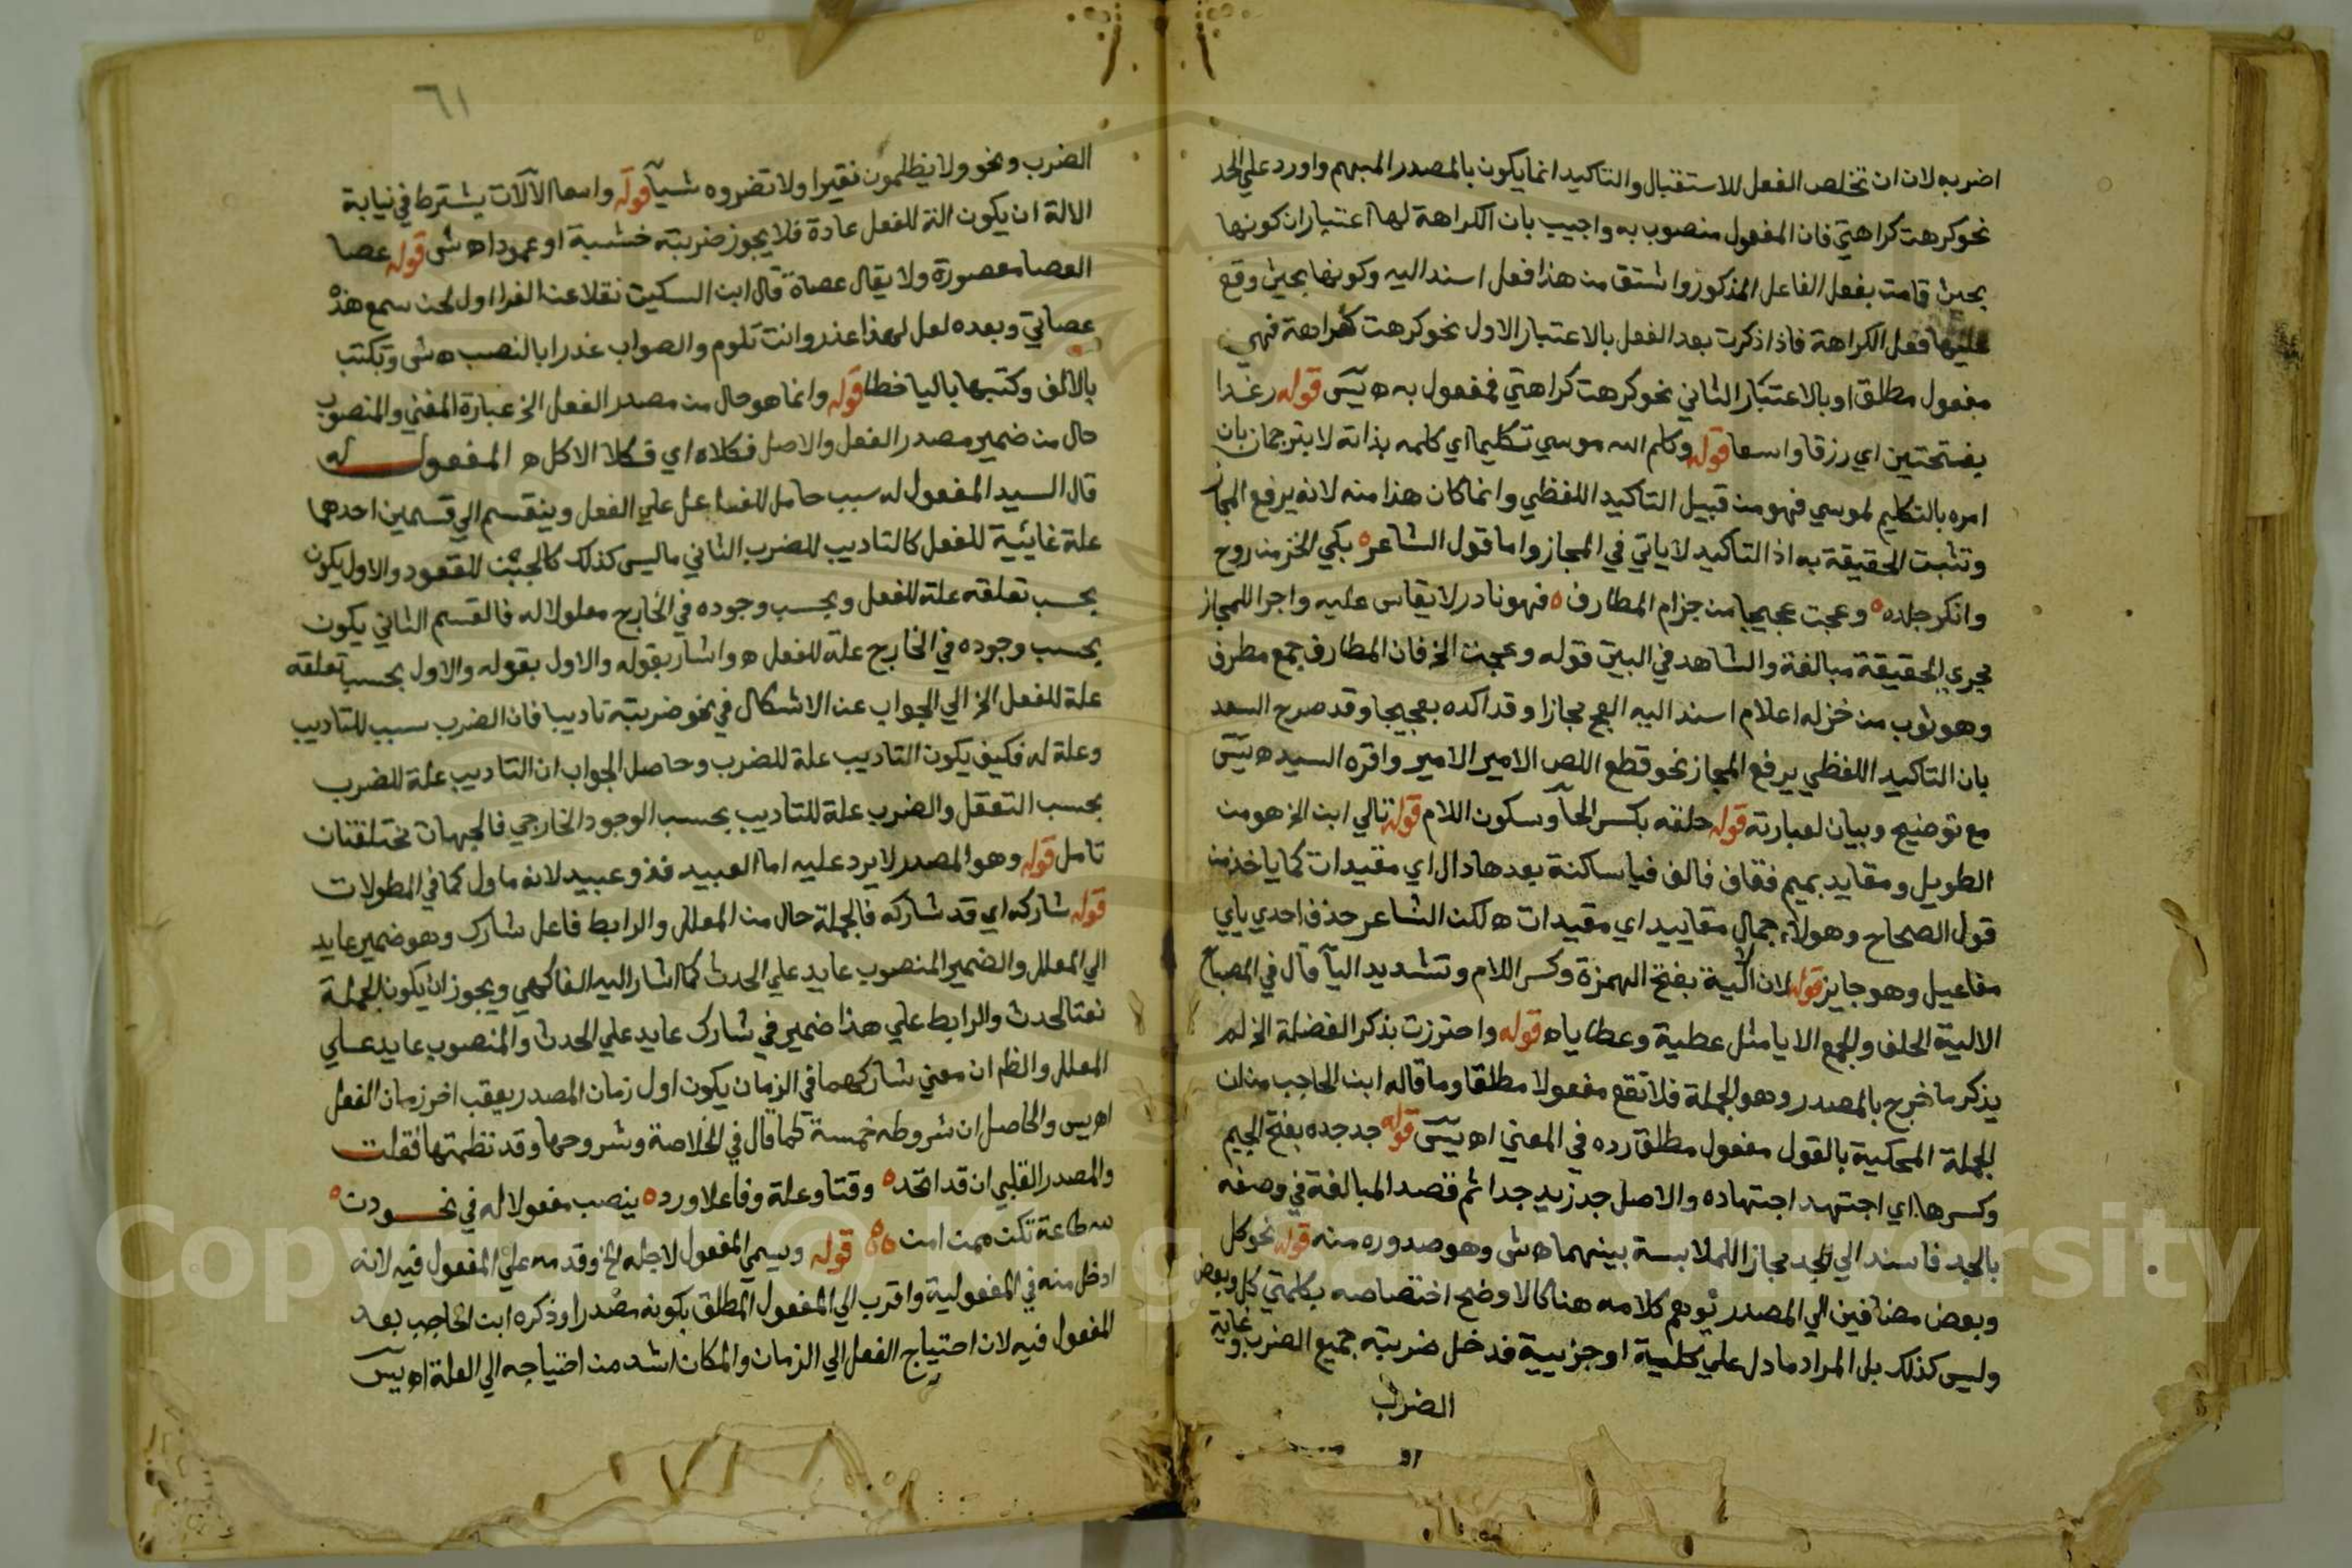 اضربه لان ان تخلص الفعل للاستقبال والتاكيد انما يكون بالمصدر المبهم واورد علي الحد
نحو كرهت كراهتي فان المفعول منصوب به واجيب بان الكراهة لها اعتباران كونها
بحيث قامت بفعل الفاعل المذكور واشتق منه هذا فعل اسند اليه وكونها بحيث وقع
عليها فعل الكراهة فاذا ذكرت بعد الفعل بالاعتبار الاول نحو كرهت كراهة فهي
مفعول مطلق او بالاعتبار الثاني نحو كرهت كراهتي فمفعول به ه يس قوله رغدا
بفتحتين اي رزقا واسعا قوله وكلم الله موسي تكليما اي كلمه بذاته لا بترجمان بان
امره بالتكليم لموسي فهو من قبيل التاكيد اللفظي وانما كان هذا منه لانه يرفع المجاز
وتثبت الحقيقة به اذ التاكيد لا ياتي في المجاز واما قول الشاعر ه بكي الخز من روح
وانكر جلده ه وعجت عجيجا من جزام المطارف ه فهو نادر لا يقاس عليه واجرا للمجاز
مجري الحقيقة مبالغة والشاهد في البيت قوله وعجت الخ فان المطارف جمع مطرف
وهو ثوب من خز له اعلام اسند اليه العج مجازا وقد اكده بعجيجا وقد صرح السعد
بان التاكيد اللفظي يرفع المجاز نحو قطع اللص الامير الامير واقره السيد ه يس
مع توضيح وبيان لعبارته قوله حلفه بكسر الحآ وسكون اللام قوله تالي ابن الخ هو من
الطويل ومقايد بميم فقاف فالف فيا ساكنة بعدها دال اي مقيدات كما ياخذ من
قول الصحاح وهولاء جمال مقاييد اي مقيدات ه لكن الشاعر حذف احدي يايي
مفاعيل وهو جايز قوله لان الالية بفتح الهمزة وكسر اللام وتشديد اليآ قال في المصباح
الالية الحلف والجمع الايا مثل عطية وعطايا ه قوله واحترزت بذكر الفضلة الخ لم
يذكر ما خرج بالمصدر وهو الجملة فلا تقع مفعولا مطلقا وما قاله ابن الحاجب من ان
الجملة المحكية بالقول مفعول مطلق رده في المغني اه يس قوله جد جده بفتح الجيم
وكسرها اي اجتهد اجتهاده والاصل جد زيد جدا ثم قصد المبالغة في وصفه
بالجد فاسند الي الجد مجازا للملابسة بينهما ه ش وهو صدوره منه قوله نحو كل
وبعض مضافين الي المصدر توهم كلامه هنا كالاوضح اختصاصه بكلمتي كل وبعض
وليس كذلك بل المراد ما دل علي كلية او جزيية فدخل ضربته جميع الضرب وغاية
الضرب
٦١
الضرب ونحو ولا يظلمون نقيرا ولا تضروه شيآ قوله واسما الآلات يشترط في نيابة
الالة ان يكون الة للفعل عادة فلا يجوز ضربته خشبة او عمودا ه ش قوله عصا
العصا مقصورة ولا يقال عصاة قال ابن السكيت نقلا عن الفرا اول لحن سمع هذه
عصاتي وبعده لعل لهذا عذر وانت تلوم والصواب عذرا بالنصب ه ش وتكتب
بالالف وكتبها باليا خطا قوله وانما هو حال من مصدر الفعل الخ عبارة المغني والمنصوب
حال من ضمير مصدر الفعل والاصل فكلاه اي فكلا الاكل ه المفعول له
قال السيد المفعول له سبب حامل للفاعل علي الفعل وينقسم الي قسمين احدهما
علة غائية للفعل كالتاديب للضرب الثاني ما ليس كذلك كالجبن للقعود والاول يكون
بحسب تعلقه علة للفعل وبحسب وجوده في الخارج معلولا له فالقسم الثاني يكون
بحسب وجوده في الخارج علة للفعل ه واشار بقوله والاول بقوله والاول بحسب تعلقه
علة للفعل الخ الي الجواب عن الاشكال في نحو ضربته تاديبا فان الضرب سبب للتاديب
وعلة له فكيف يكون التاديب علة للضرب وحاصل الجواب ان التاديب علة للضرب
بحسب التعقل والضرب علة للتاديب بحسب الوجود الخارجي فالجهات مختلفتان
تامل قوله وهو المصدر لا يرد عليه اما العبيد فذو عبيد لانه ماول كما في المطولات
قوله شاركه اي قد شاركه فالجملة حال من المعلل والرابط فاعل شارك وهو ضمير عايد
الي المعلل والضمير المنصوب عايد علي الحدث كما اشار اليه الفاكهي ويجوز ان يكون الجملة
نعتا لحدث والرابط علي هذا ضمير في شارك عايد علي الحدث والمنصوب عايد علي
المعلل والظم ان معني شاركهما في الزمان يكون اول زمان المصدر يعقب اخر زمان الفعل
اه يس والحاصل ان شروطه خمسة كما قال في الخلاصة وشروحها وقد نظمتها فقلت
والمصدر القلبي ان قد اتحد ه وقتا وعلة وفاعلا ورد ه ينصب مفعولا له في نحو دن ه
لله طاعة تكن ممن امن ه قوله ويسمي المفعول لاجله الخ وقدمه علي المفعول فيه لانه
ادخل منه في المفعولية واقرب الي المفعول المطلق بكونه مصدرا وذكره ابن الحاجب بعد
المفعول فيه لان احتياج الفعل الي الزمان والمكان اشد من احتياجه الي العلة اه يس
Copyright © King Saud University